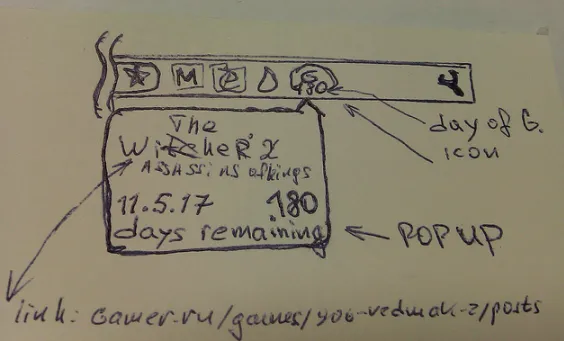 M
180
day of G.
icon
The
Witcher 2
Assassins of kings
11.5.17 180
days remaining
POPUP
link: Gamer.ru/games/906-vedmak-2/posts